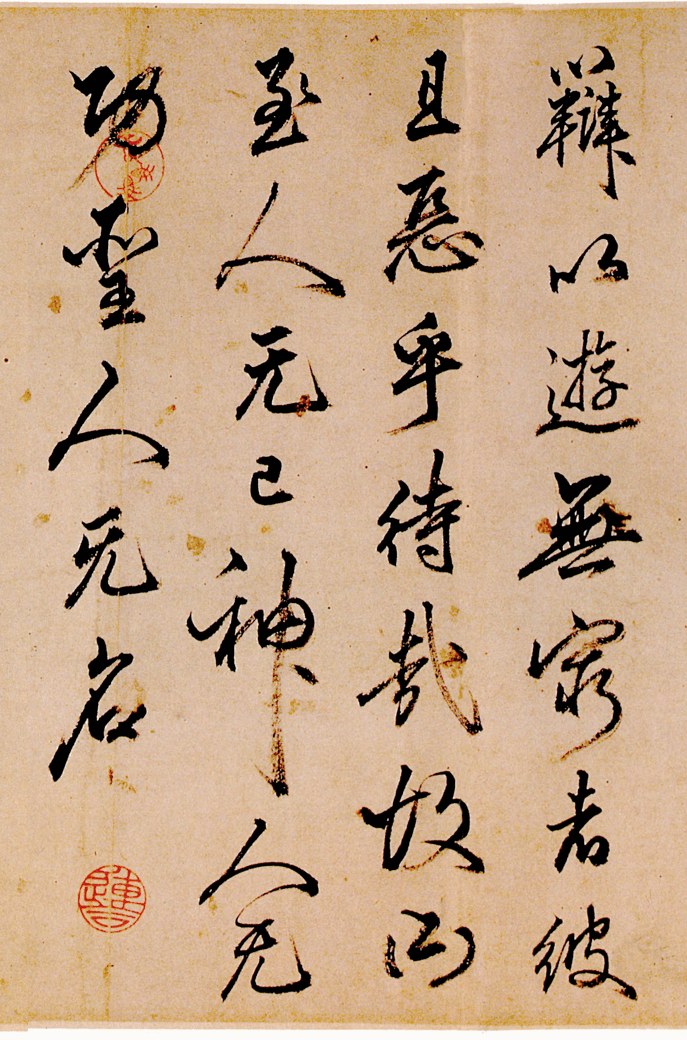 辯以遊無窮者彼
且惡乎待哉故曰
至人无己神人无
功聖人无名